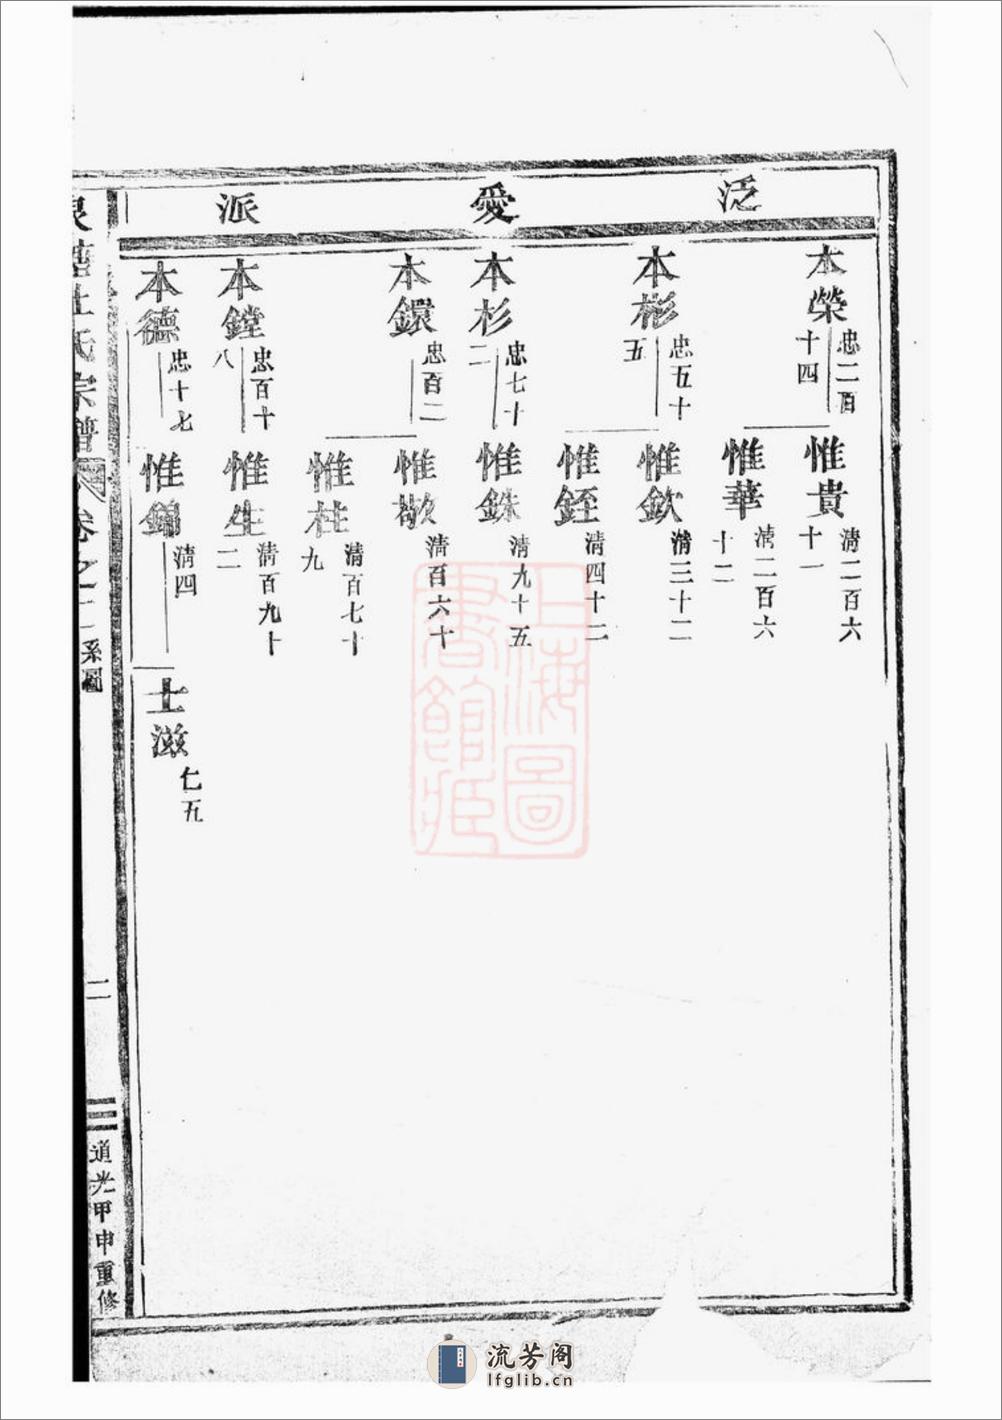 泛愛派
本榮
忠二百
十四
惟貴
清二百六
十一
惟華
清二百六
十二
本彬
忠五十
五
惟欽
清三十二
惟銍
清四十二
本杉
忠七十
二
惟銖
清九十五
本鐶
忠百二
惟歡
清百六十
惟柱
清百七十
九
本鏜
忠百十
八
惟生
清百九十
二
本德
忠十七
惟錦
清四
士滋
仁五
杜氏宗譜
卷之二系圖
二
道光甲申重修
上海圖書館藏
流芳阁
lfglib.cn